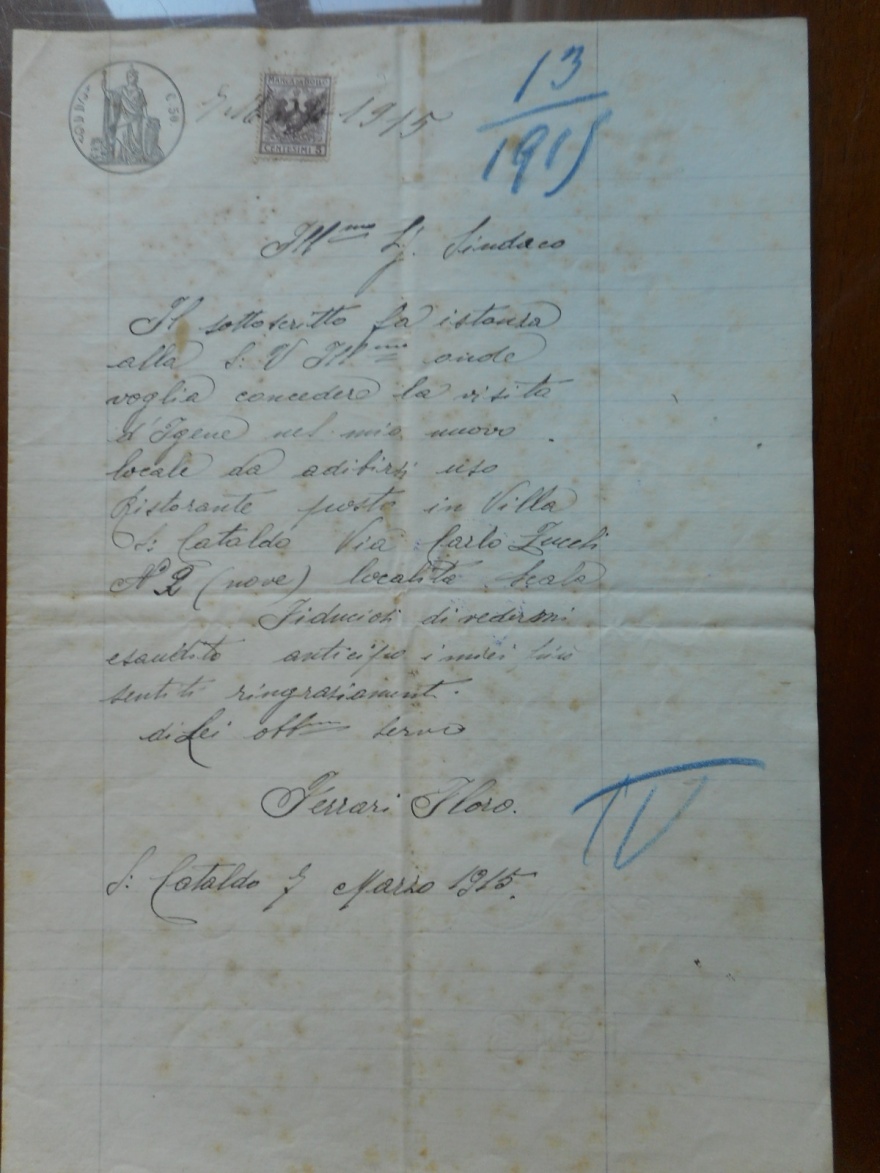 C. 50
1915
CENTESIMI 5
13
1915
Ill.mo Sg. Sindaco
Il sottoscritto fa istanza
alla S: V Ill.mo onde
voglia concedere la visita
d'Igene nel mio nuovo
locale da adibirsi uso
Ristorante posto in Villa
S: Cataldo Via Carlo Zucchi
N° 9 (nove) località Scala
Fiducioso di vedermi
esaudito anticipo i miei più
sentiti ringraziamenti.
di Lei obb.mo servo
Ferrari Floro.
IV
S: Cataldo 7 Marzo 1915.